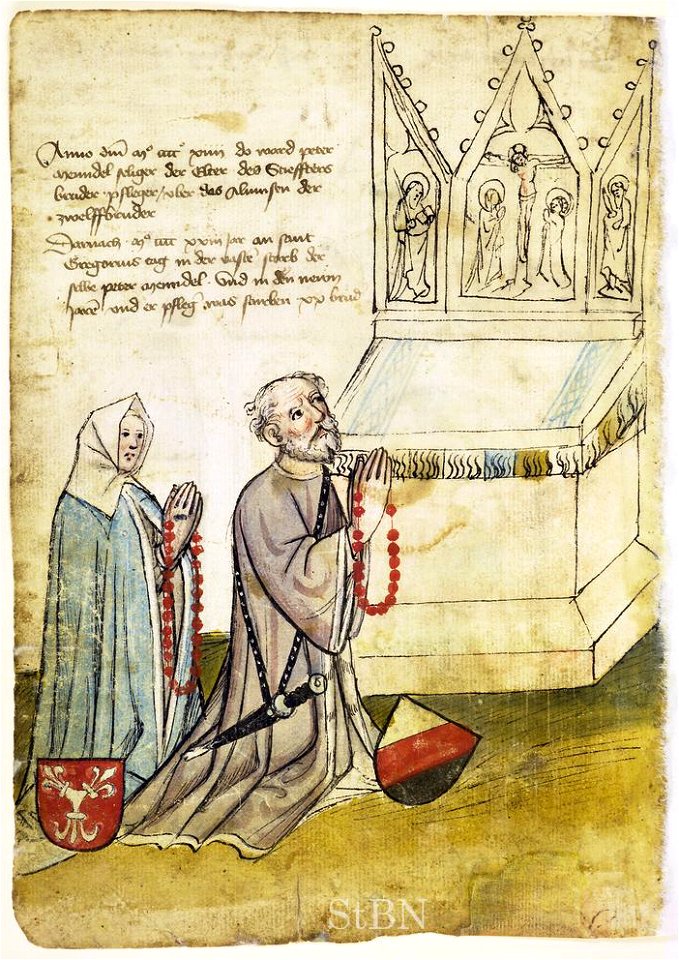 Anno dm̄ mº cccc xiiii do ward peter
Mendel seliger der Elter des Stiffters
bruder pfleger/vber das Almusen der
zwelffbruder
Darnach mº cccc xxiii jar an sant
Gregorius tag in der vaste starb der
selbe peter Mendel. Vnd in den newn
jaren vnd er pfleg was sturben xx brud
StBN